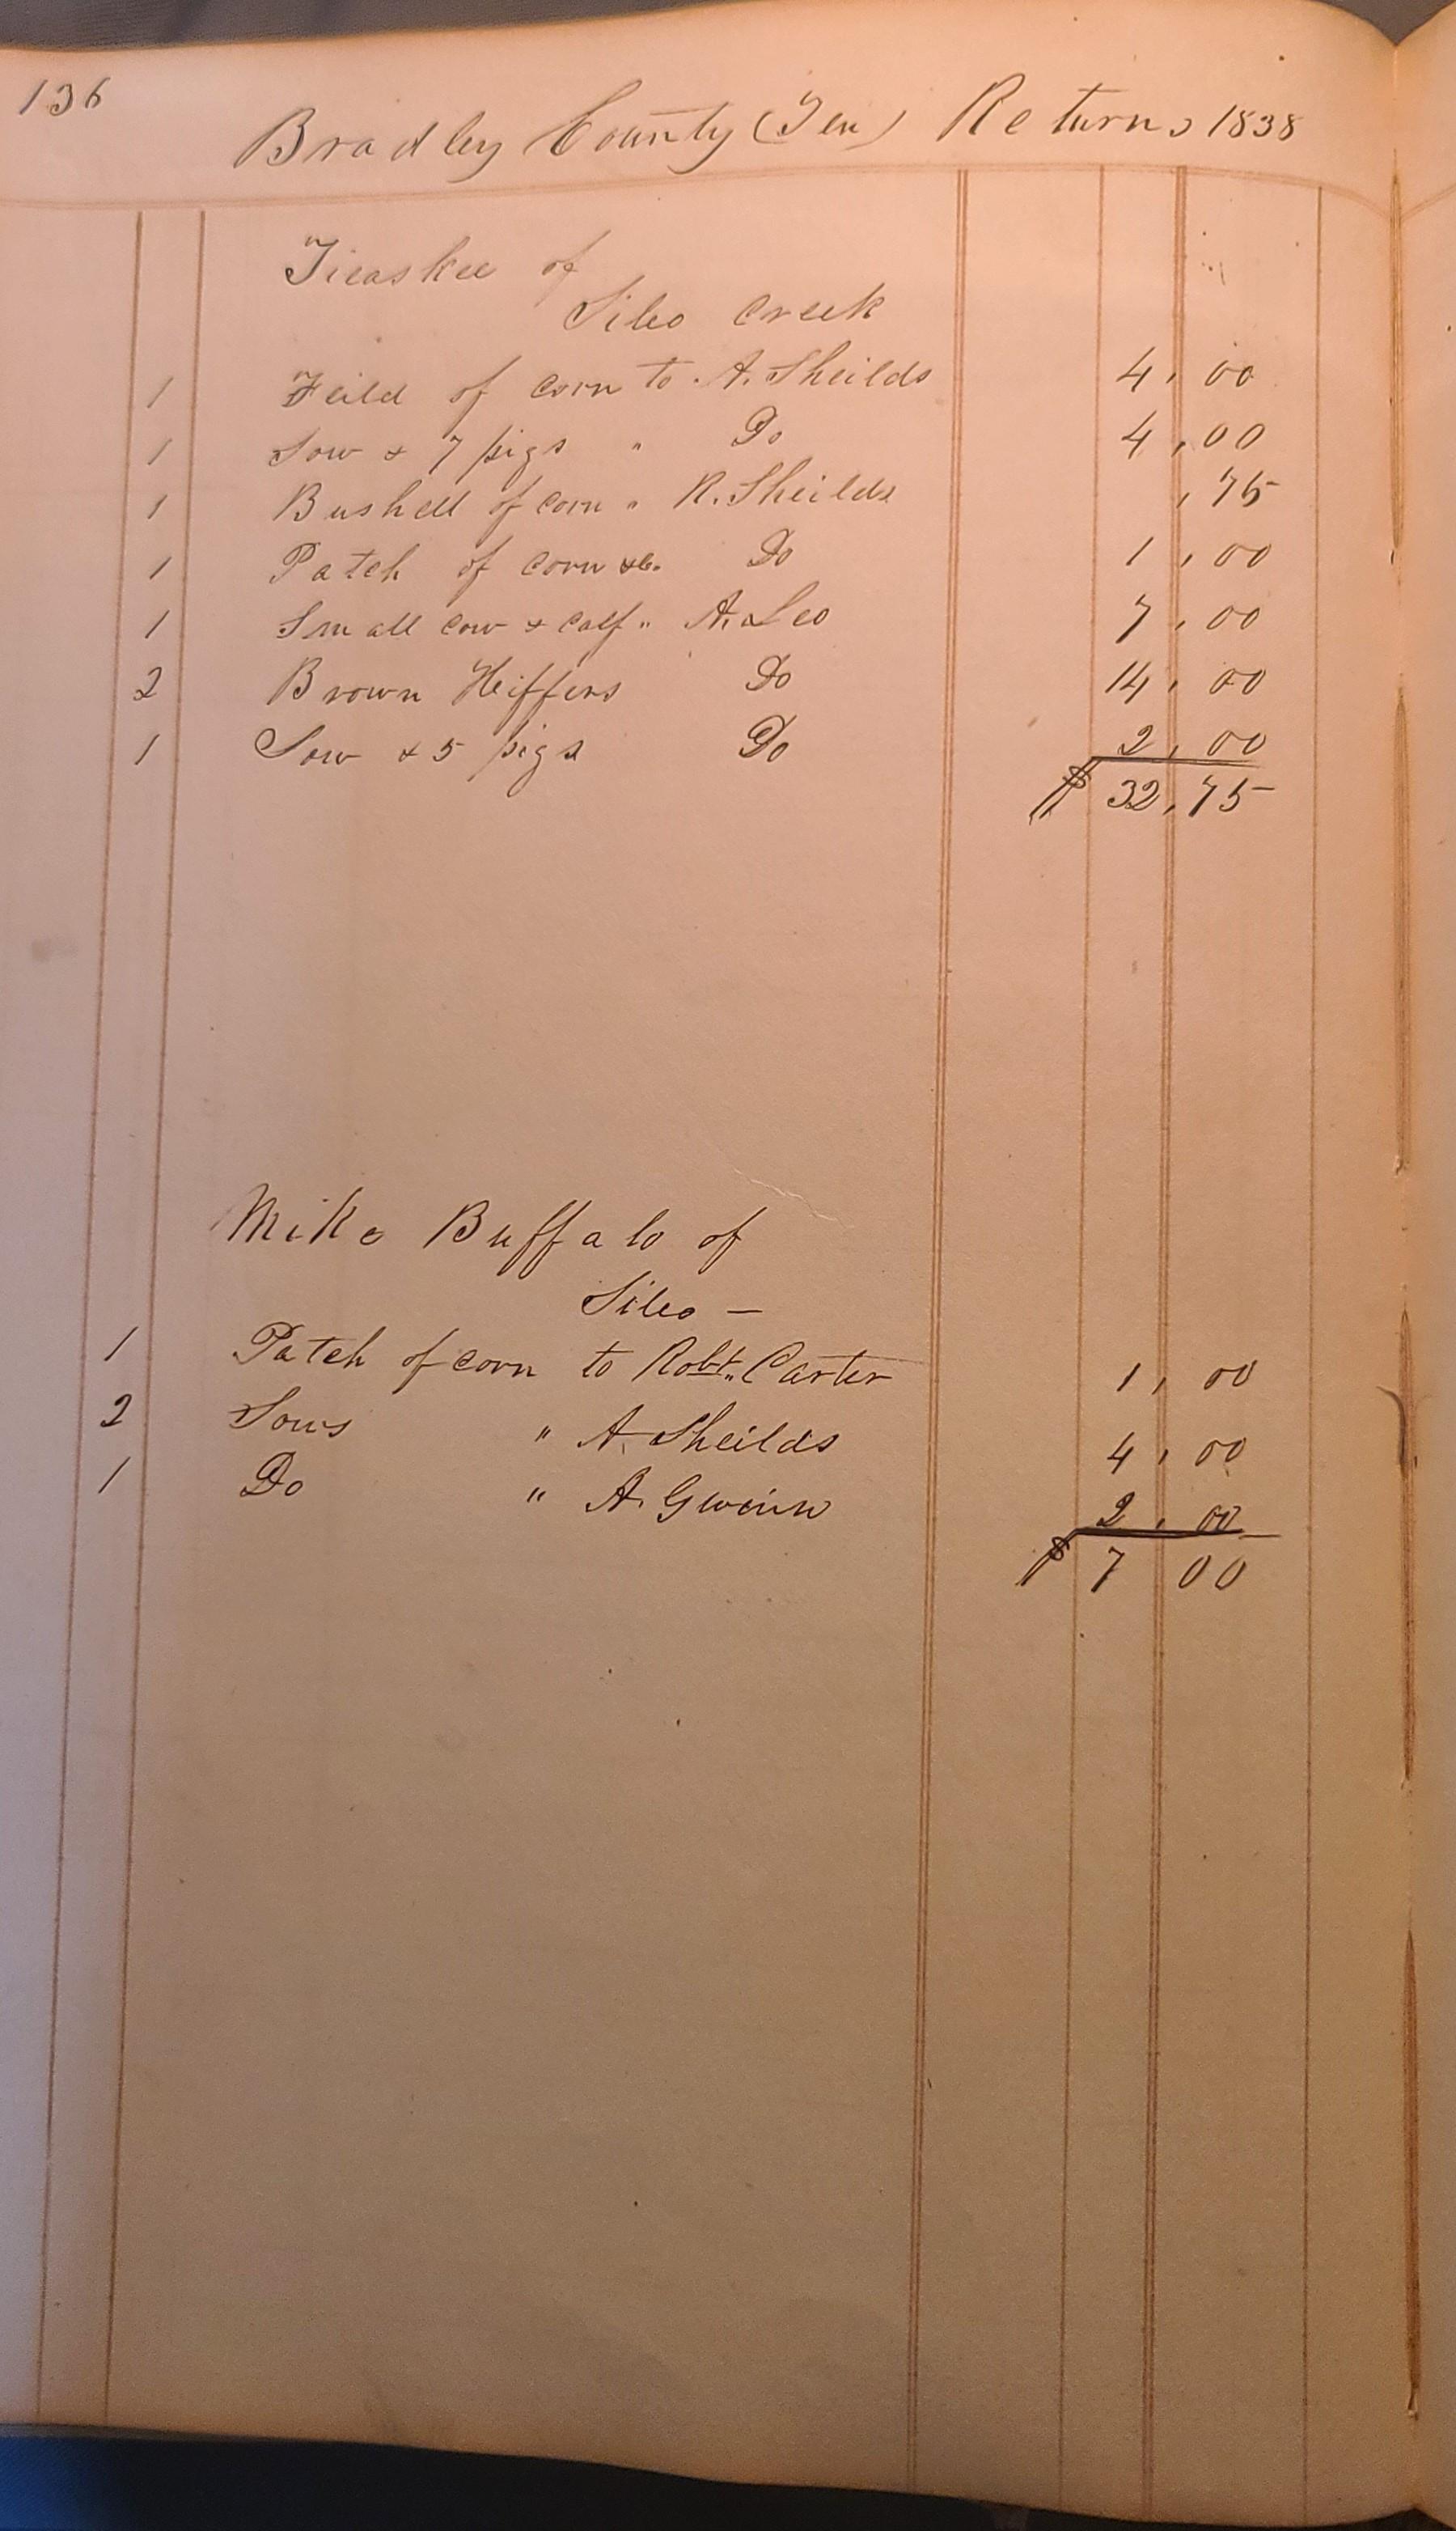 136
Bradley County (Ten) Returns 1838
Ticaskee of
Sileo Creek
1 Feild of corn to A. Sheilds 4,00
1 Sow & 7 pigs " Do 4,00
1 Bushell of corn " R. Sheilds ,75
1 Patch of corn &c. Do 1,00
1 Small cow & calf " A. Leo 7,00
2 Brown Heiffers Do 14,00
1 Sow & 5 pigs Do 2,00
$ 32,75
Mike Buffalo of
Sileo —
1 Patch of corn to Robt. Carter 1,00
2 Sows " A. Sheilds 4,00
1 Do " A. Gwinn 2,00
$ 7 00